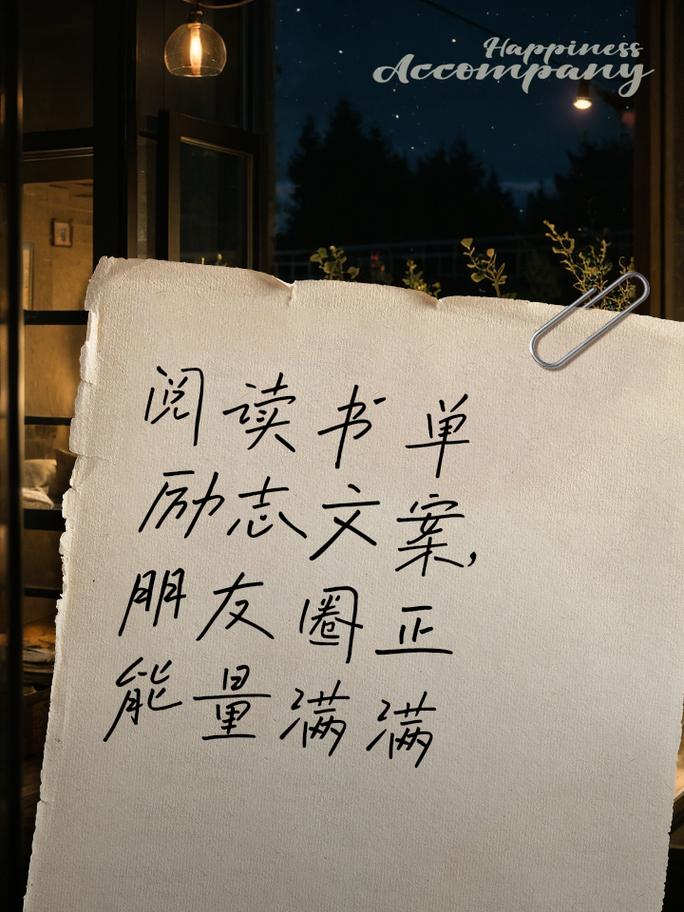 Happiness
Accompany
阅读书单
励志文案,
朋友圈正
能量满满